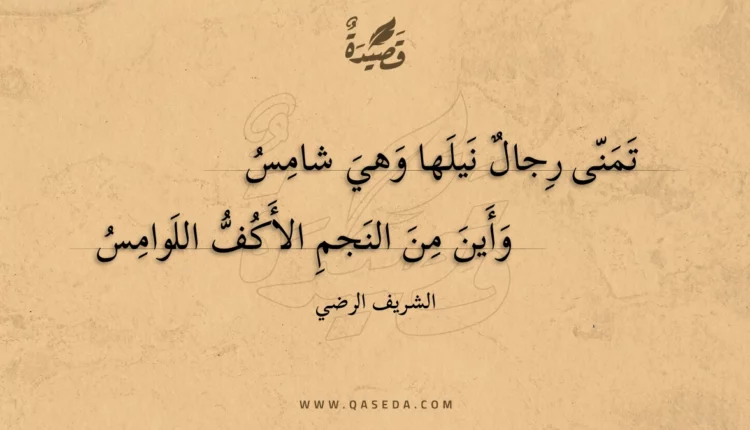 قَصِيدَةٌ
تَمَنّى رِجالٌ نَيلَها وَهيَ شامِسُ
وَأَينَ مِنَ النَجمِ الأَكُفُّ اللَوامِسُ
الشريف الرضي
WWW.QASEDA.COM